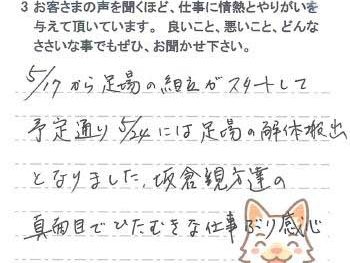 3 お客さまの声を聞くほど、仕事に情熱とやりがいを
与えて頂いています。良いこと、悪いこと、どんな
ささいな事でもぜひ、お聞かせ下さい。
5/17から足場の組立がスタートして
予定通り5/24には足場の解体搬出
となりました、坂倉親方達の
真面目でひたむきな仕事ぶり感心